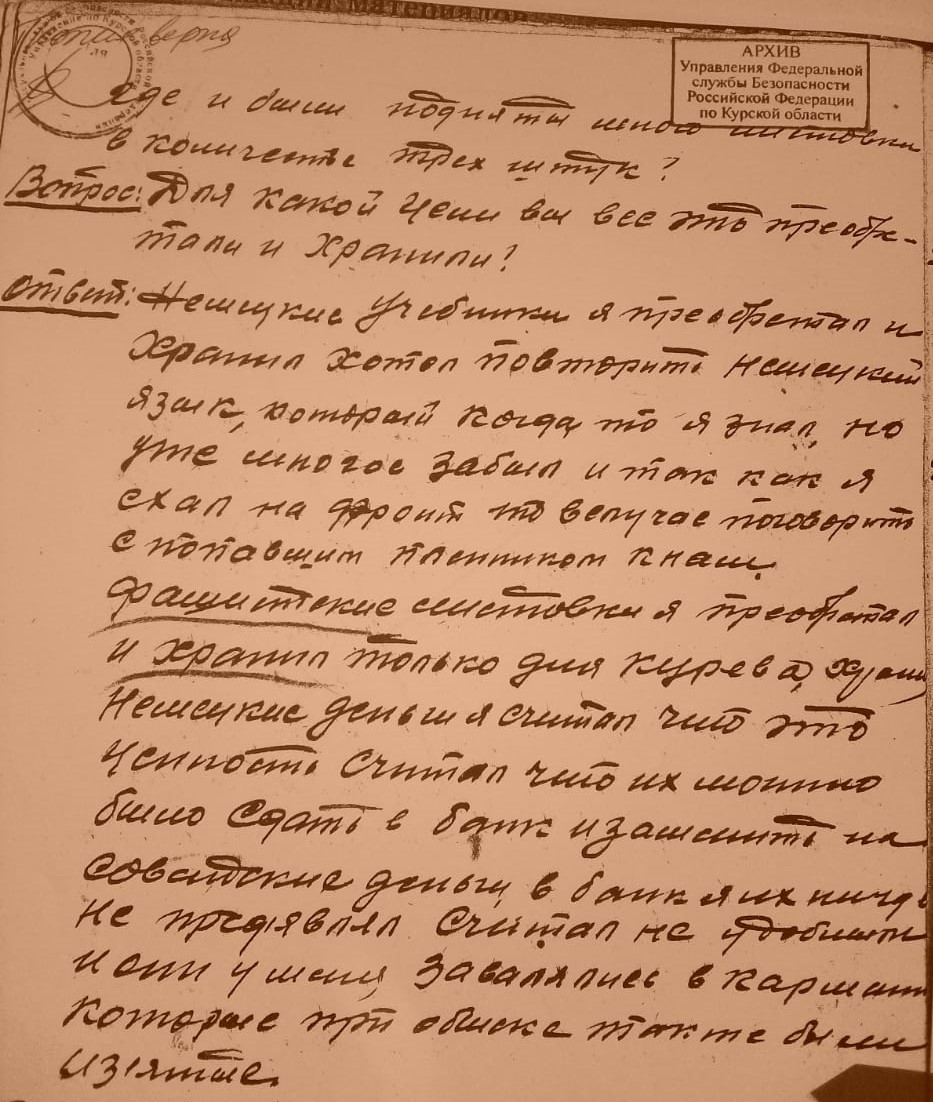 АРХИВ
Управления Федеральной
службы Безопасности
Российской Федерации
по Курской области
где и были подняты много листовки
в количестве трех штук?
Вопрос: Для какой цели вы все это преобре-
тали и хранили?
Ответ: Немецкие учебники я преобретал и
хранил хотел повторить немецкий
язык, который когда то я знал, но
уже многое забыл и так как я
ехал на фронт то вслучае поговорить
с попавшим пленником к нам.
фашистские листовки я преобретал
и хранил только для курева,
Немецкие деньги я считал что это
ценность считал что их можно
было сдать в банк и заменить на
советские деньги, в банк я их
не предявлял считал не удобным
и они у меня завалялись в кармане
которые при обыске также были
изъятые.